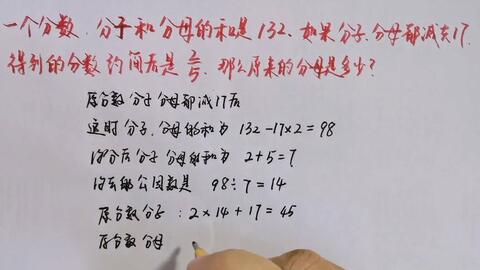 一个分数,分子和分母的和是132.如果分子、分母都减去17,
得到的分数约简后是2/5,那么原来的分母是多少?
原分数分子分母都减17后
这时分子、分母的和为 132-17×2=98
约分后分子分母的和为 2+5=7
约去的公因数是 98÷7=14
原分数分子:2×14+17=45
原分数分母